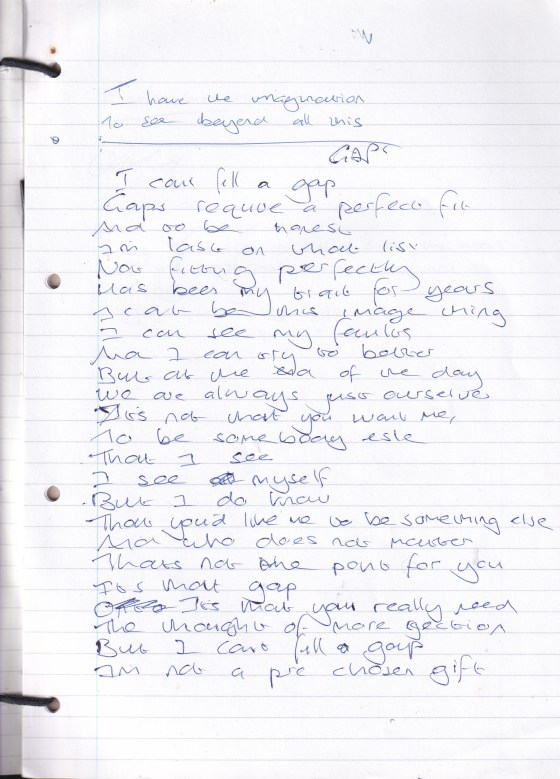 I have the imagination
To see beyond all this
GAPS
I cant fill a gap
Gaps require a perfect fit
And to be honest
Im last on that list
Not fitting perfectly
Has been my trait for years
I cant be this image thing
I can see my faults
And I can try to better
But at the end of the day
We are always just ourselves
Its not that you want me,
To be somebody esle
That I see
I see myself
But I do know
That you'd like me to be something else
And who does not matter
Thats not the point for you
Its that gap
Its that you really need
The thought of more
But I cant fill a gap
Im not a pre chosen gift